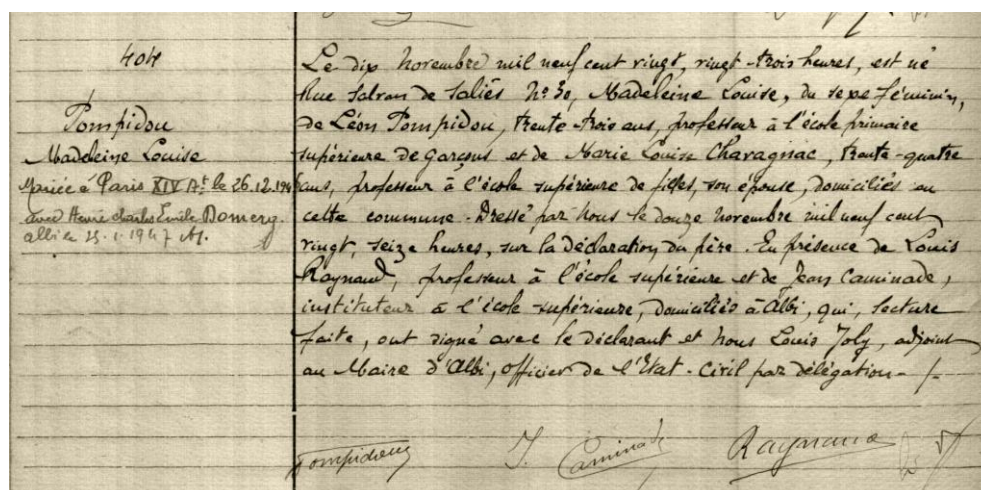 404
Pompidou
Madeleine Louise
Mariée à Paris XIV At le 26.12.194
avec Henri Charles Emile Domerg.
albi le 25.1.1947
Le dix novembre mil neuf cent vingt, vingt-trois heures, est né
Rue Salvan de Saliès No 30, Madeleine Louise, du sexe féminin,
de Léon Pompidou, trente-trois ans, professeur à l'école primaire
supérieure de Garçons et de Marie Louise Chavagnac, trente-quatre
ans, professeur à l'école supérieure de filles, son épouse, domiciliés en
cette commune - Dressé par nous le douze novembre mil neuf cent
vingt, seize heures, sur la déclaration du père. En présence de Louis
Raynaud, professeur à l'école supérieure et de Jean Caminade,
instituteur à l'école supérieure, domiciliés à Albi, qui, lecture
faite, ont signé avec le déclarant et nous Louis Joly, adjoint
au Maire d'Albi, officier de l'Etat-Civil par délégation - /-
Pompidou J. Caminade Raynaud